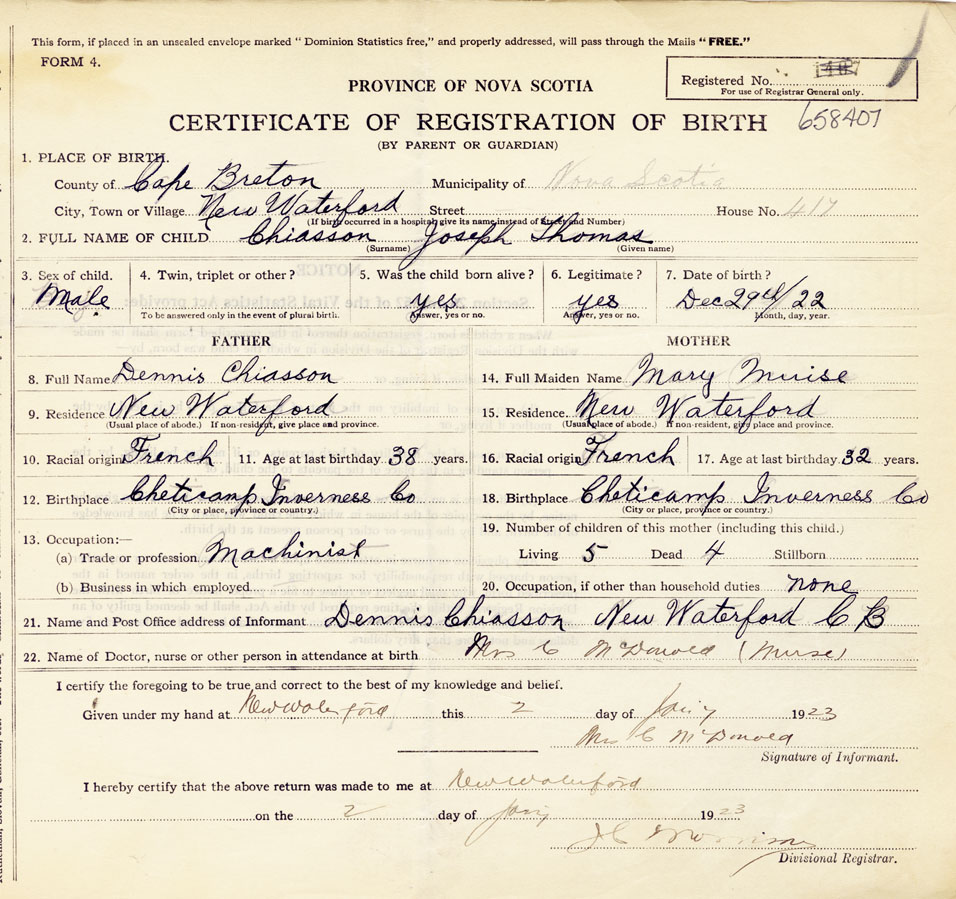 This form, if placed in an unsealed envelope marked “ Dominion Statistics free,” and properly addressed, will pass through the Mails “ FREE.”
FORM 4.
Registered No.
For use of Registrar General only.
PROVINCE OF NOVA SCOTIA
658407
CERTIFICATE OF REGISTRATION OF BIRTH
(BY PARENT OR GUARDIAN)
1. PLACE OF BIRTH.
County of Cape Breton Municipality of Nova Scotia
City, Town or Village New Waterford Street House No. 417
(If birth occurred in a hospital give its name instead of Street and Number)
2. FULL NAME OF CHILD Chiasson Joseph Thomas
(Surname) (Given name)
3. Sex of child. 4. Twin, triplet or other ? 5. Was the child born alive ? 6. Legitimate ? 7. Date of birth ?
Male yes yes Dec 29th/22
To be answered only in the event of plural birth. Answer, yes or no. Answer, yes or no. Month, day, year.
FATHER MOTHER
8. Full Name Dennis Chiasson 14. Full Maiden Name Mary Muise
9. Residence New Waterford 15. Residence. New Waterford
(Usual place of abode.) If non-resident, give place and province. (Usual place of abode.) If non-resident, give place and province.
10. Racial origin French 11. Age at last birthday 38 years. 16. Racial origin French 17. Age at last birthday 32 years.
12. Birthplace Cheticamp Inverness Co 18. Birthplace Cheticamp Inverness Co
(City or place, province or country.) (City or place, province or country.)
13. Occupation:— 19. Number of children of this mother (including this child.)
(a) Trade or profession Machinist Living 5 Dead 4 Stillborn
(b) Business in which employed 20. Occupation, if other than household duties none
21. Name and Post Office address of Informant Dennis Chiasson New Waterford C B
22. Name of Doctor, nurse or other person in attendance at birth Mrs C McDonald (Nurse)
I certify the foregoing to be true and correct to the best of my knowledge and belief.
Given under my hand at New Waterford this 2 day of Jany 1923
Mrs C McDonald
Signature of Informant.
I hereby certify that the above return was made to me at New Waterford
on the 2 day of Jany 1923
Divisional Registrar.